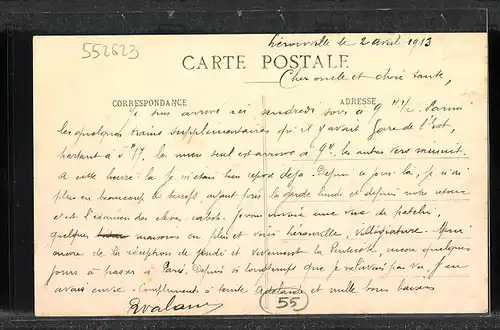 552623
le 2 avril 1913
CARTE POSTALE
Cher oncle et chère tante,
CORRESPONDANCE
ADRESSE
Je suis arrivé ici vendredi soir à 9 h 1/2. Parmi
les quelques trains supplémentaires qu'il y avait Gare de l'Est,
partant à 5h17, le mien seul est arrivé à 9h, les autres vers minuit.
A cette heure-là je n'étais bien reposé déjà. Depuis ce jour-là, je n'ai
plus eu beaucoup de temps, ayant pris la garde lundi et depuis notre retour
c'est l'examen des élèves cabots. Je vous envoie une vue du patelin,
quelques maisons en plus et voici villégiature. Merci
encore de la réception de jeudi et vivement la Pentecôte, encore quelques
jours à passer à Paris. Depuis si longtemps que je n'avais pas vu, j'en
avais envie. Compliments à tante et mille bons baisers
55